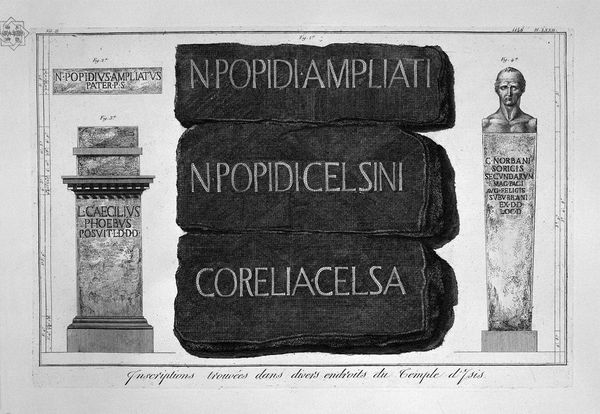 Fig. 1ª
N·POPIDI·AMPLIATI
N·POPIDI·CELSINI
CORELIACELSA
Fig. 2ª
N·POPIDIVS·AMPLIATVS
PATER·P·S·
Fig. 3ª
L·CAECILIVS
PHOEBVS
POSVIT·L·D·D·D·
Fig. 4ª
C·NORBANI
SORICIS
SECVNDARVM
MAG·PAGI
AVG·FELICIS
SVBVRBANI
EX·D·D
LOC·D
Inscriptions trouvées dans divers endroits du Temple d'Isis.